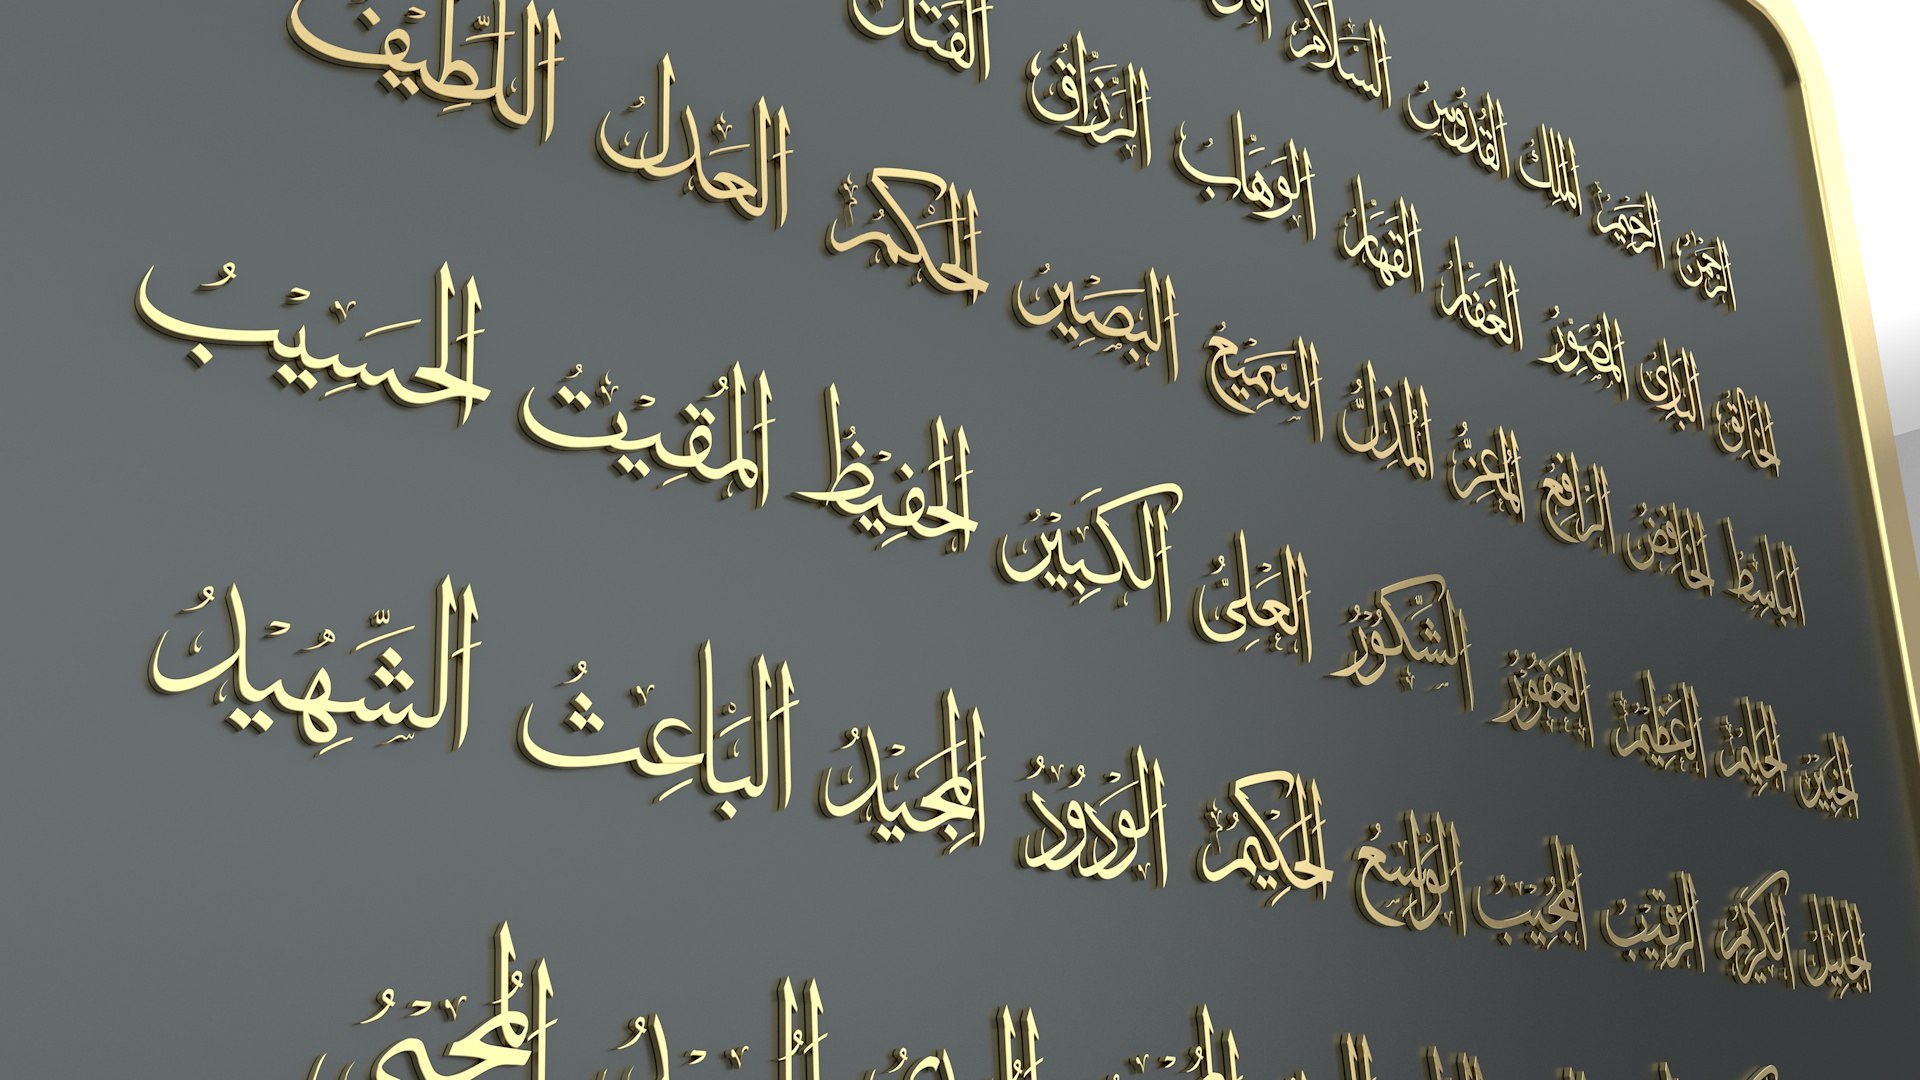 اَلرَّحْمٰنُ اَلرَّحِيْمُ اَلْمَلِكُ اَلْقُدُّوْسُ اَلسَّلَامُ
اَلْخَالِقُ اَلْبَارِئُ اَلْمُصَوِّرُ اَلْغَفَّارُ اَلْقَهَّارُ اَلْوَهَّابُ اَلرَّزَّاقُ اَلْفَتَّاحُ
اَلْبَاسِطُ اَلْخَافِضُ اَلرَّافِعُ اَلْمُعِزُّ اَلْمُذِلُّ اَلسَّمِيْعُ اَلْبَصِيْرُ اَلْحَكَمُ اَلْعَدلُ اَللَّطِيْفُ
اَلْخَبِيْرُ اَلْحَلِيْمُ اَلْعَظِيْمُ اَلْغَفُوْرُ اَلشَّكُوْرُ اَلْعَلِىُّ اَلْكَبِيْرُ اَلْحَفِيْظُ اَلْمُقِيْتُ اَلْحَسِيْبُ
اَلْجَلِيْلُ اَلْكَرِيْمُ اَلرَّقِيْبُ اَلْمُجِيْبُ اَلْوَاسِعُ اَلْحَكِيْمُ اَلْوَدُوْدُ اَلْمَجِيْدُ اَلْبَاعِثُ اَلشَّهِيْدُ